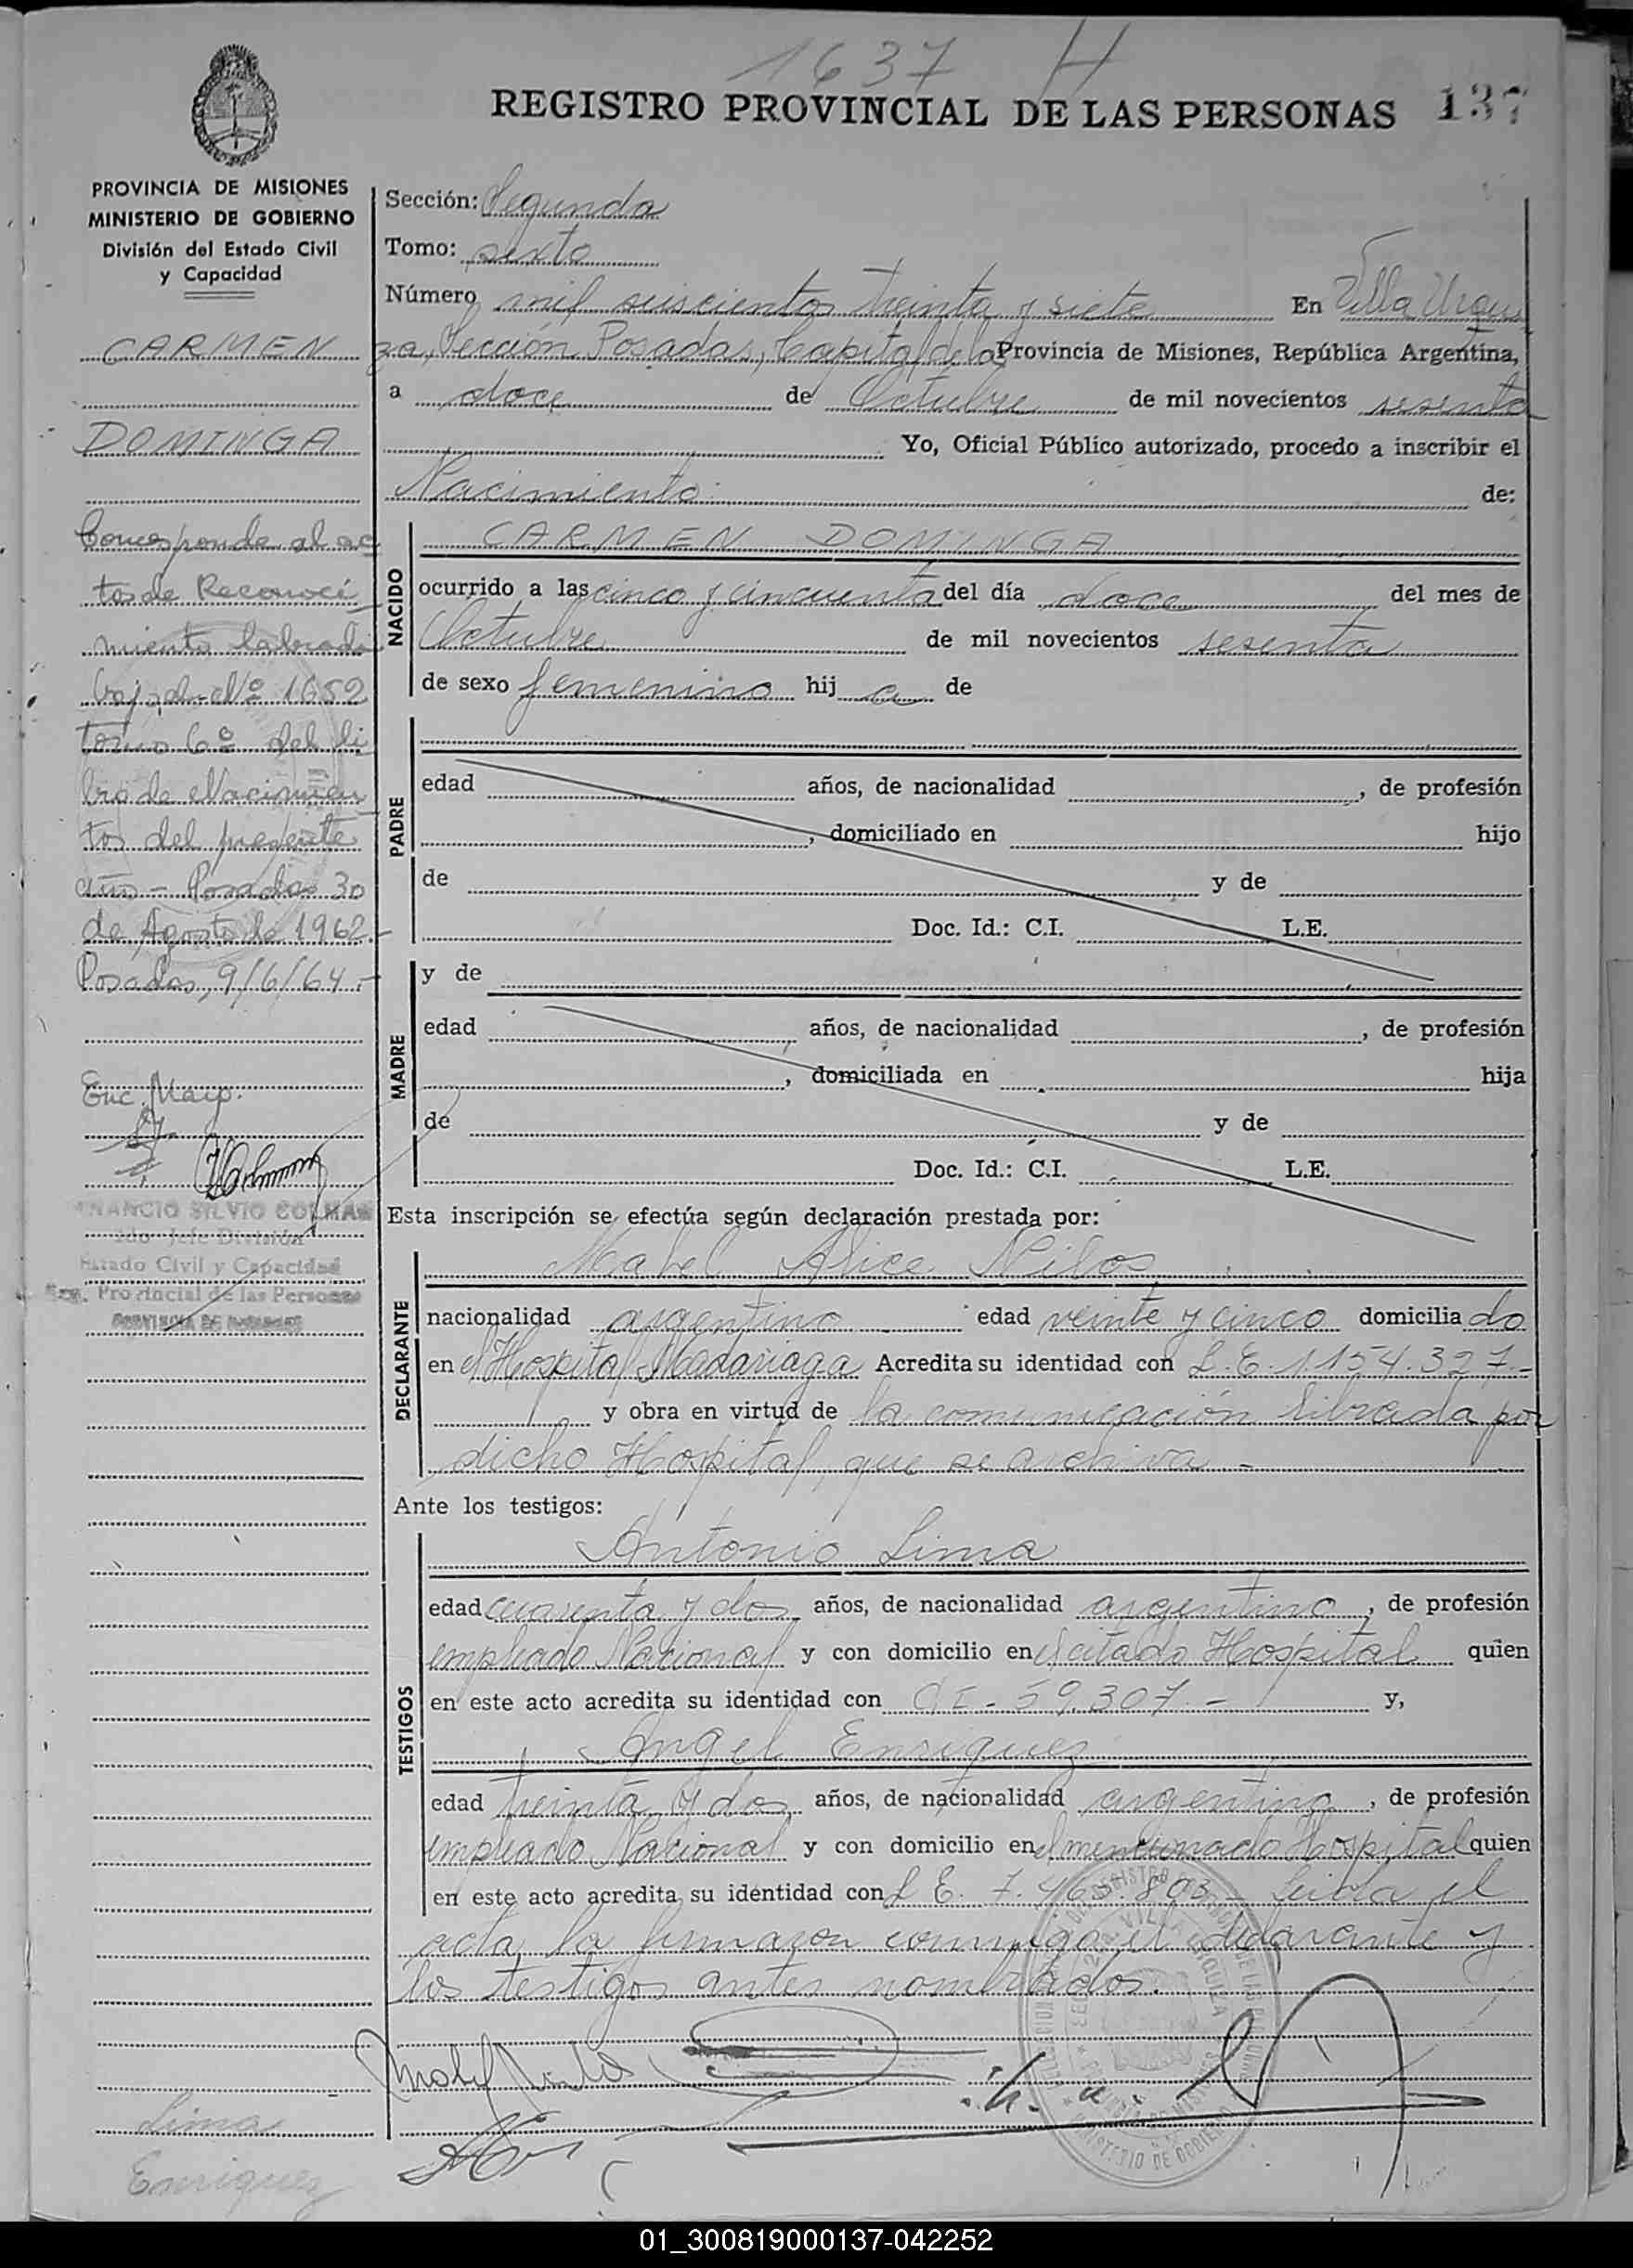 1637 H
REGISTRO PROVINCIAL DE LAS PERSONAS 137
PROVINCIA DE MISIONES
MINISTERIO DE GOBIERNO
División del Estado Civil
y Capacidad
CARMEN
DOMINGA
Corresponde al ac
tos de Reconoci
miento labrado
bajo el Nº 1652
tomo 6º del li
bro de Nacimien
tos del presente
año - Posadas 30
de Agosto de 1962.-
Posadas, 9/6/64.-
Enc. Marg.
SILVIO COLMAN
2do Jefe División
Estado Civil y Capacidad
Reg. Provincial de las Personas
PROVINCIA DE MISIONES
Sección: Segunda
Tomo: sexto
Número mil seiscientos treinta y siete En Villa Urqui
za, Sección Posadas, Capital de la Provincia de Misiones, República Argentina,
a doce de Octubre de mil novecientos sesenta
Yo, Oficial Público autorizado, procedo a inscribir el
Nacimiento de:
NACIDO
CARMEN DOMINGA
ocurrido a las cinco y cincuenta del día doce del mes de
Octubre de mil novecientos sesenta
de sexo femenino hij a de
PADRE
edad años, de nacionalidad , de profesión
, domiciliado en hijo
de y de
Doc. Id.: C.I. L.E.
MADRE
y de
edad años, de nacionalidad , de profesión
, domiciliada en hija
de y de
Doc. Id.: C.I. L.E.
Esta inscripción se efectúa según declaración prestada por:
DECLARANTE
Mabel Alice Nilos
nacionalidad argentino edad veinte y cinco domicilia do
en el Hospital Madariaga Acredita su identidad con L.E. 1.154.327.-
y obra en virtud de la comunicación librada por
dicho Hospital, que se archiva -
Ante los testigos:
TESTIGOS
Antonio Lima
edad cuarenta y dos años, de nacionalidad argentino , de profesión
empleado Nacional y con domicilio en el citado Hospital quien
en este acto acredita su identidad con CI - 59.307 - y,
Angel Enriquez
edad treinta y dos años, de nacionalidad argentino , de profesión
empleado Nacional y con domicilio en el mencionado Hospital quien
en este acto acredita su identidad con L E. 7.463.803 - Leida el
acta, la firmaron conmigo, el declarante y
los testigos antes nombrados.
Lima
Enriquez
01_300819000137-042252